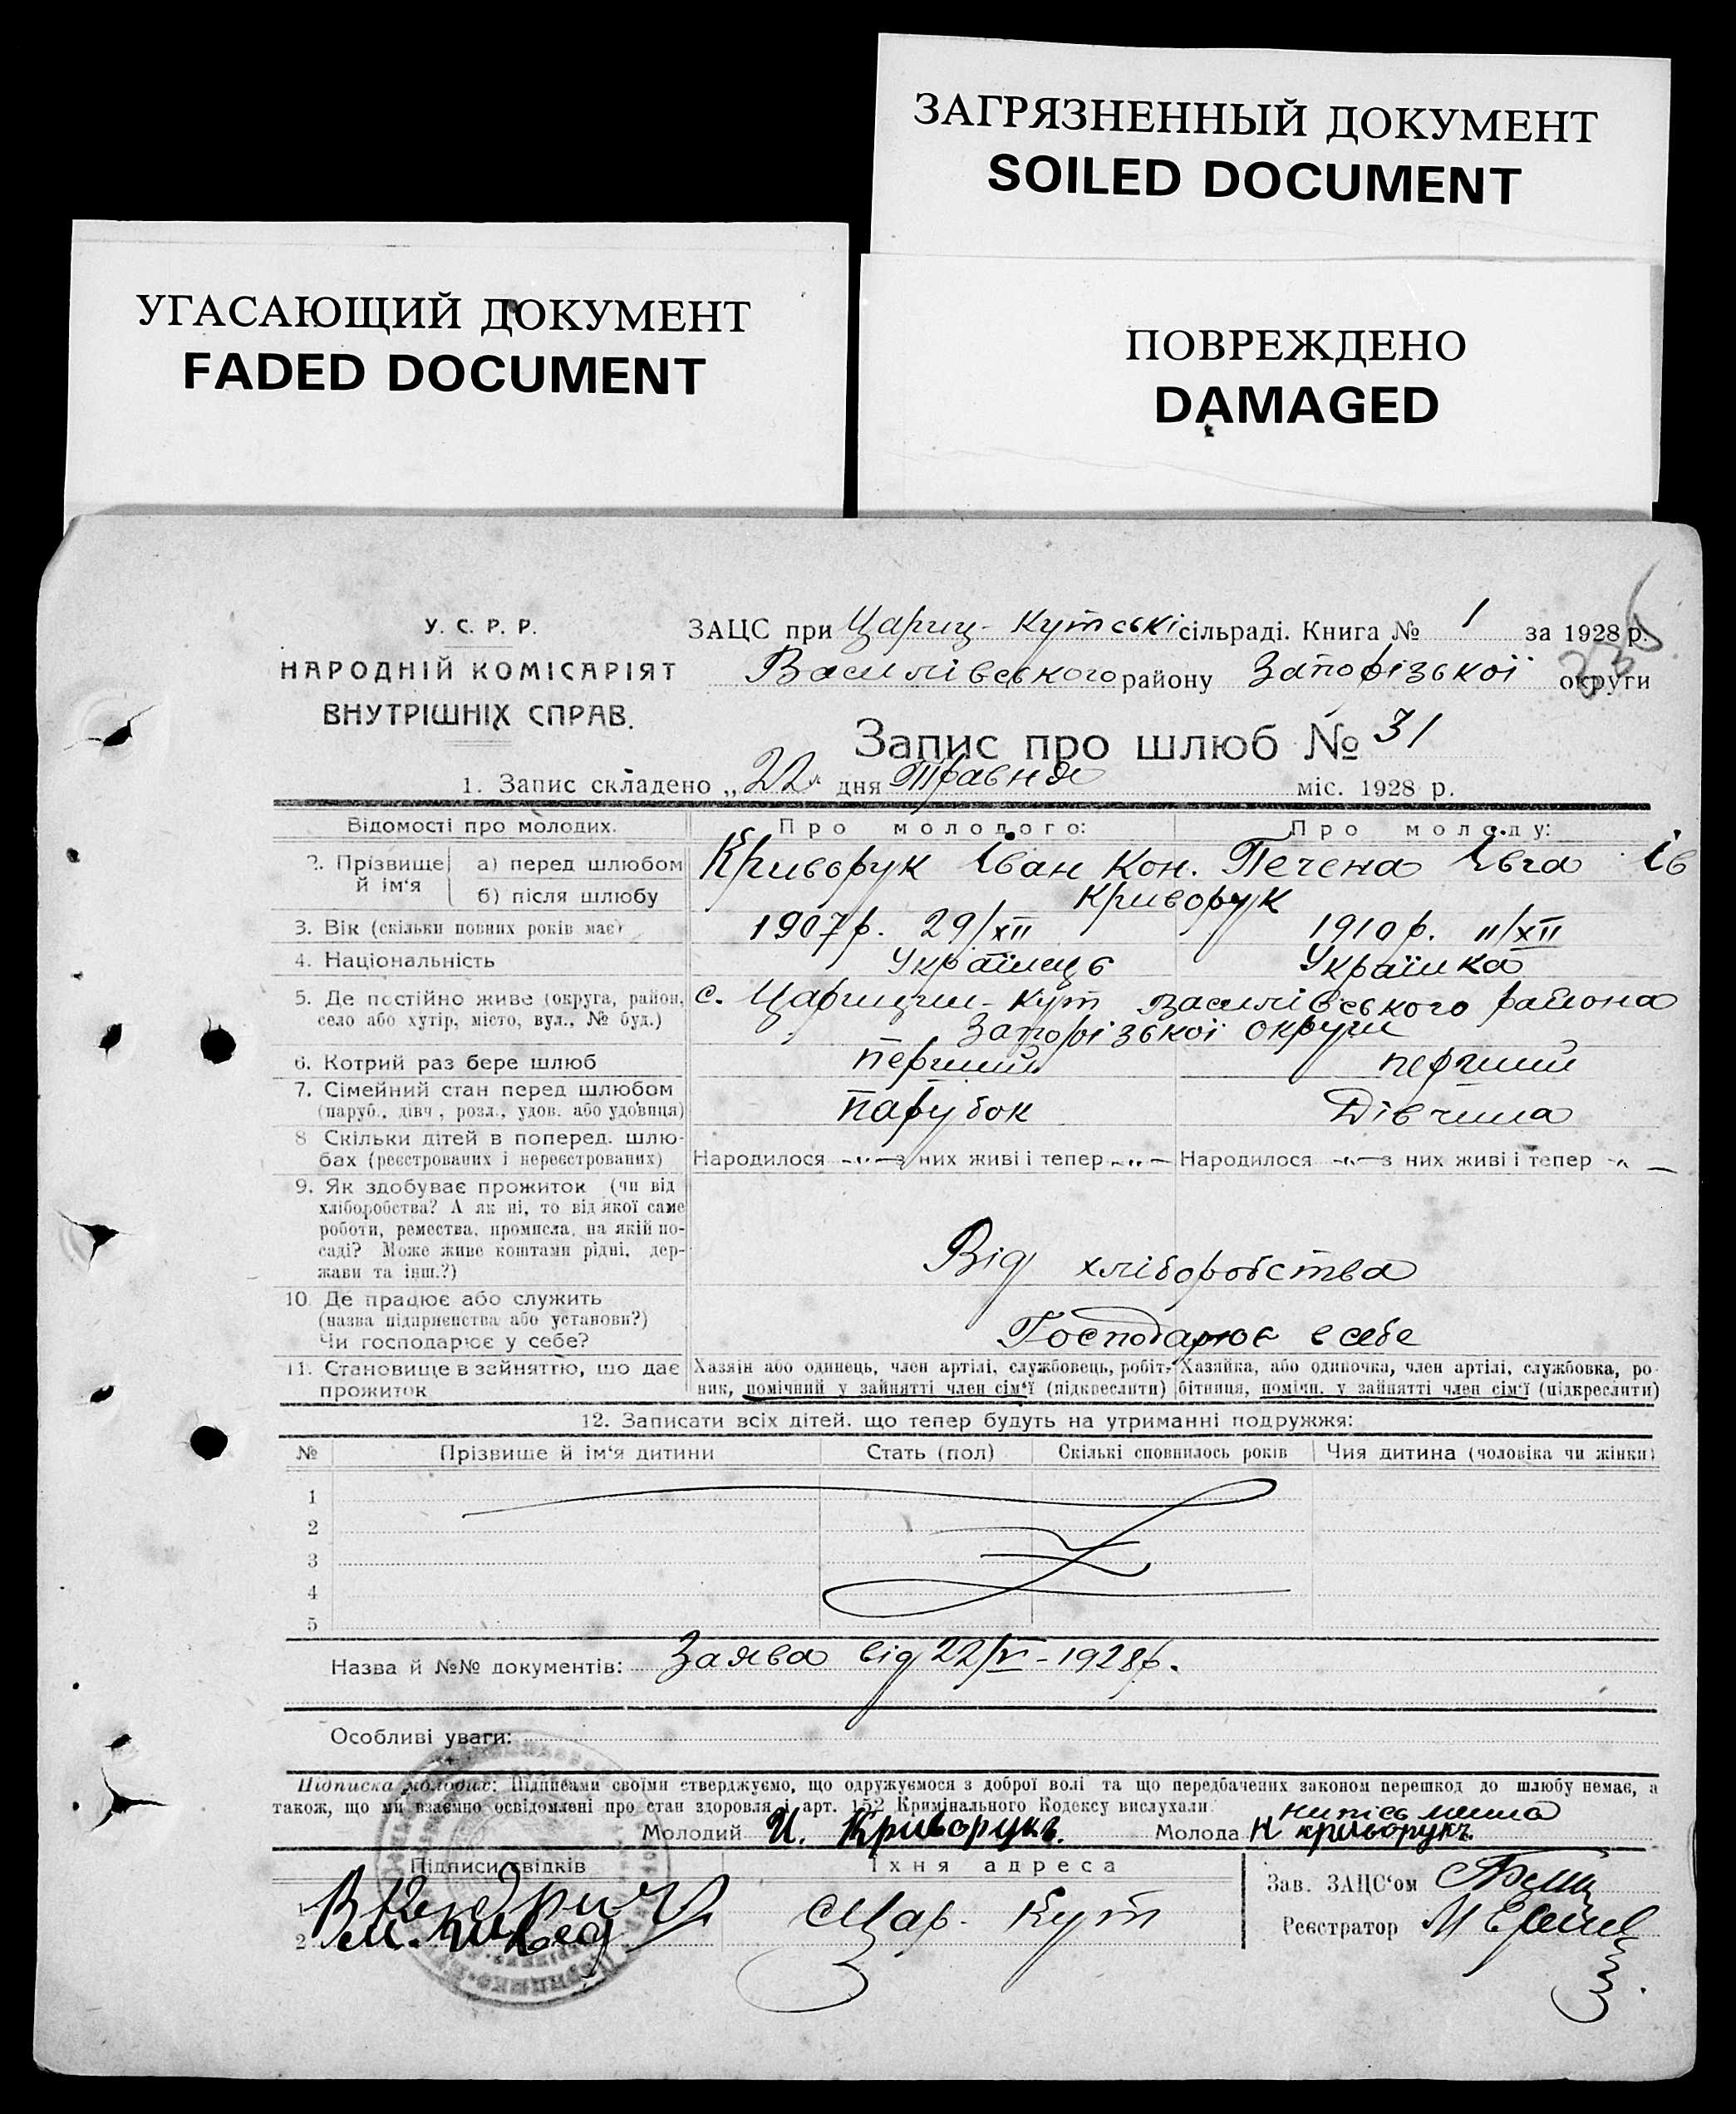 ЗАГРЯЗНЕННЫЙ ДОКУМЕНТ
SOILED DOCUMENT
УГАСАЮЩИЙ ДОКУМЕНТ
FADED DOCUMENT
ПОВРЕЖДЕНО
DAMAGED
У. С. Р. Р.
НАРОДНІЙ КОМІСАРІЯТ
ВНУТРІШНІХ СПРАВ.
ЗАЦС при Цариц-Кутські сільраді. Книга № 1 за 1928 р.
Василівського району Запорізької округи
Запис про шлюб № 31
1. Запис складено „22" дня Травня міс. 1928 р.
Відомості про молодих. Про молодого: Про молоду:
2. Прізвище й ім'я а) перед шлюбом Криворук Іван Кон. Печена Івга Ів
б) після шлюбу Криворук
3. Вік (скільки повних років має) 1907 р. 29/XII 1910 р. 11/XII
4. Національність Українець Українка
5. Де постійно живе (округа, район, с. Царицин-Кут Василівського района
село або хутір, місто, вул., № буд.) Запорізької округи
6. Котрий раз бере шлюб перший перший
7. Сімейний стан перед шлюбом Парубок Дівчина
(паруб., дівч., розл., удов. або удовиця)
8 Скільки дітей в поперед. шлю-
бах (реєстрованих і нереєстрованих) Народилося -„- з них живі і тепер -„- Народилося -„- з них живі і тепер -„-
9. Як здобуває прожиток (чи від
хліборобства? А як ні, то від якої саме
роботи, ремества, промисла, на якій по-
саді? Може живе коштами рідні, дер-
жави та інш.?) Від хліборобства
10. Де працює або служить
(назва підприємства або установи?)
Чи господарює у себе? Господарює в себе
11. Становище в зайняттю, що дає Хазяін або одинець, член артілі, службовець, робіт- Хазяйка, або одиночка, член артілі, службовка, ро-
прожиток ник, помічний у зайнятті член сім'ї (підкреслити) бітниця, помічн. у зайнятті член сім'ї (підкреслити)
12. Записати всіх дітей, що тепер будуть на утриманні подружжя:
№ Прізвише й ім'я дитини Стать (пол) Скількі сповнилось років Чия дитина (чоловіка чи жінки)
1
2
3
4
5
Назва й №№ документів: Заява від 22/V-1928 р.
Особливі уваги:
Підписка молодих: Підписами своїми стверджуємо, що одружуємося з доброї волі та що передбачених законом перешкод до шлюбу немає, а
також, що ми взаємно освідомлені про стан здоровля і арт. 152 Кримінального Кодексу вислухали.
Молодий И. Криворукъ. Молода Н криворукъ
Підписи свідків Їхня адреса Зав. ЗАЦС'ом
1
2 Цар. Кут
Реєстратор М